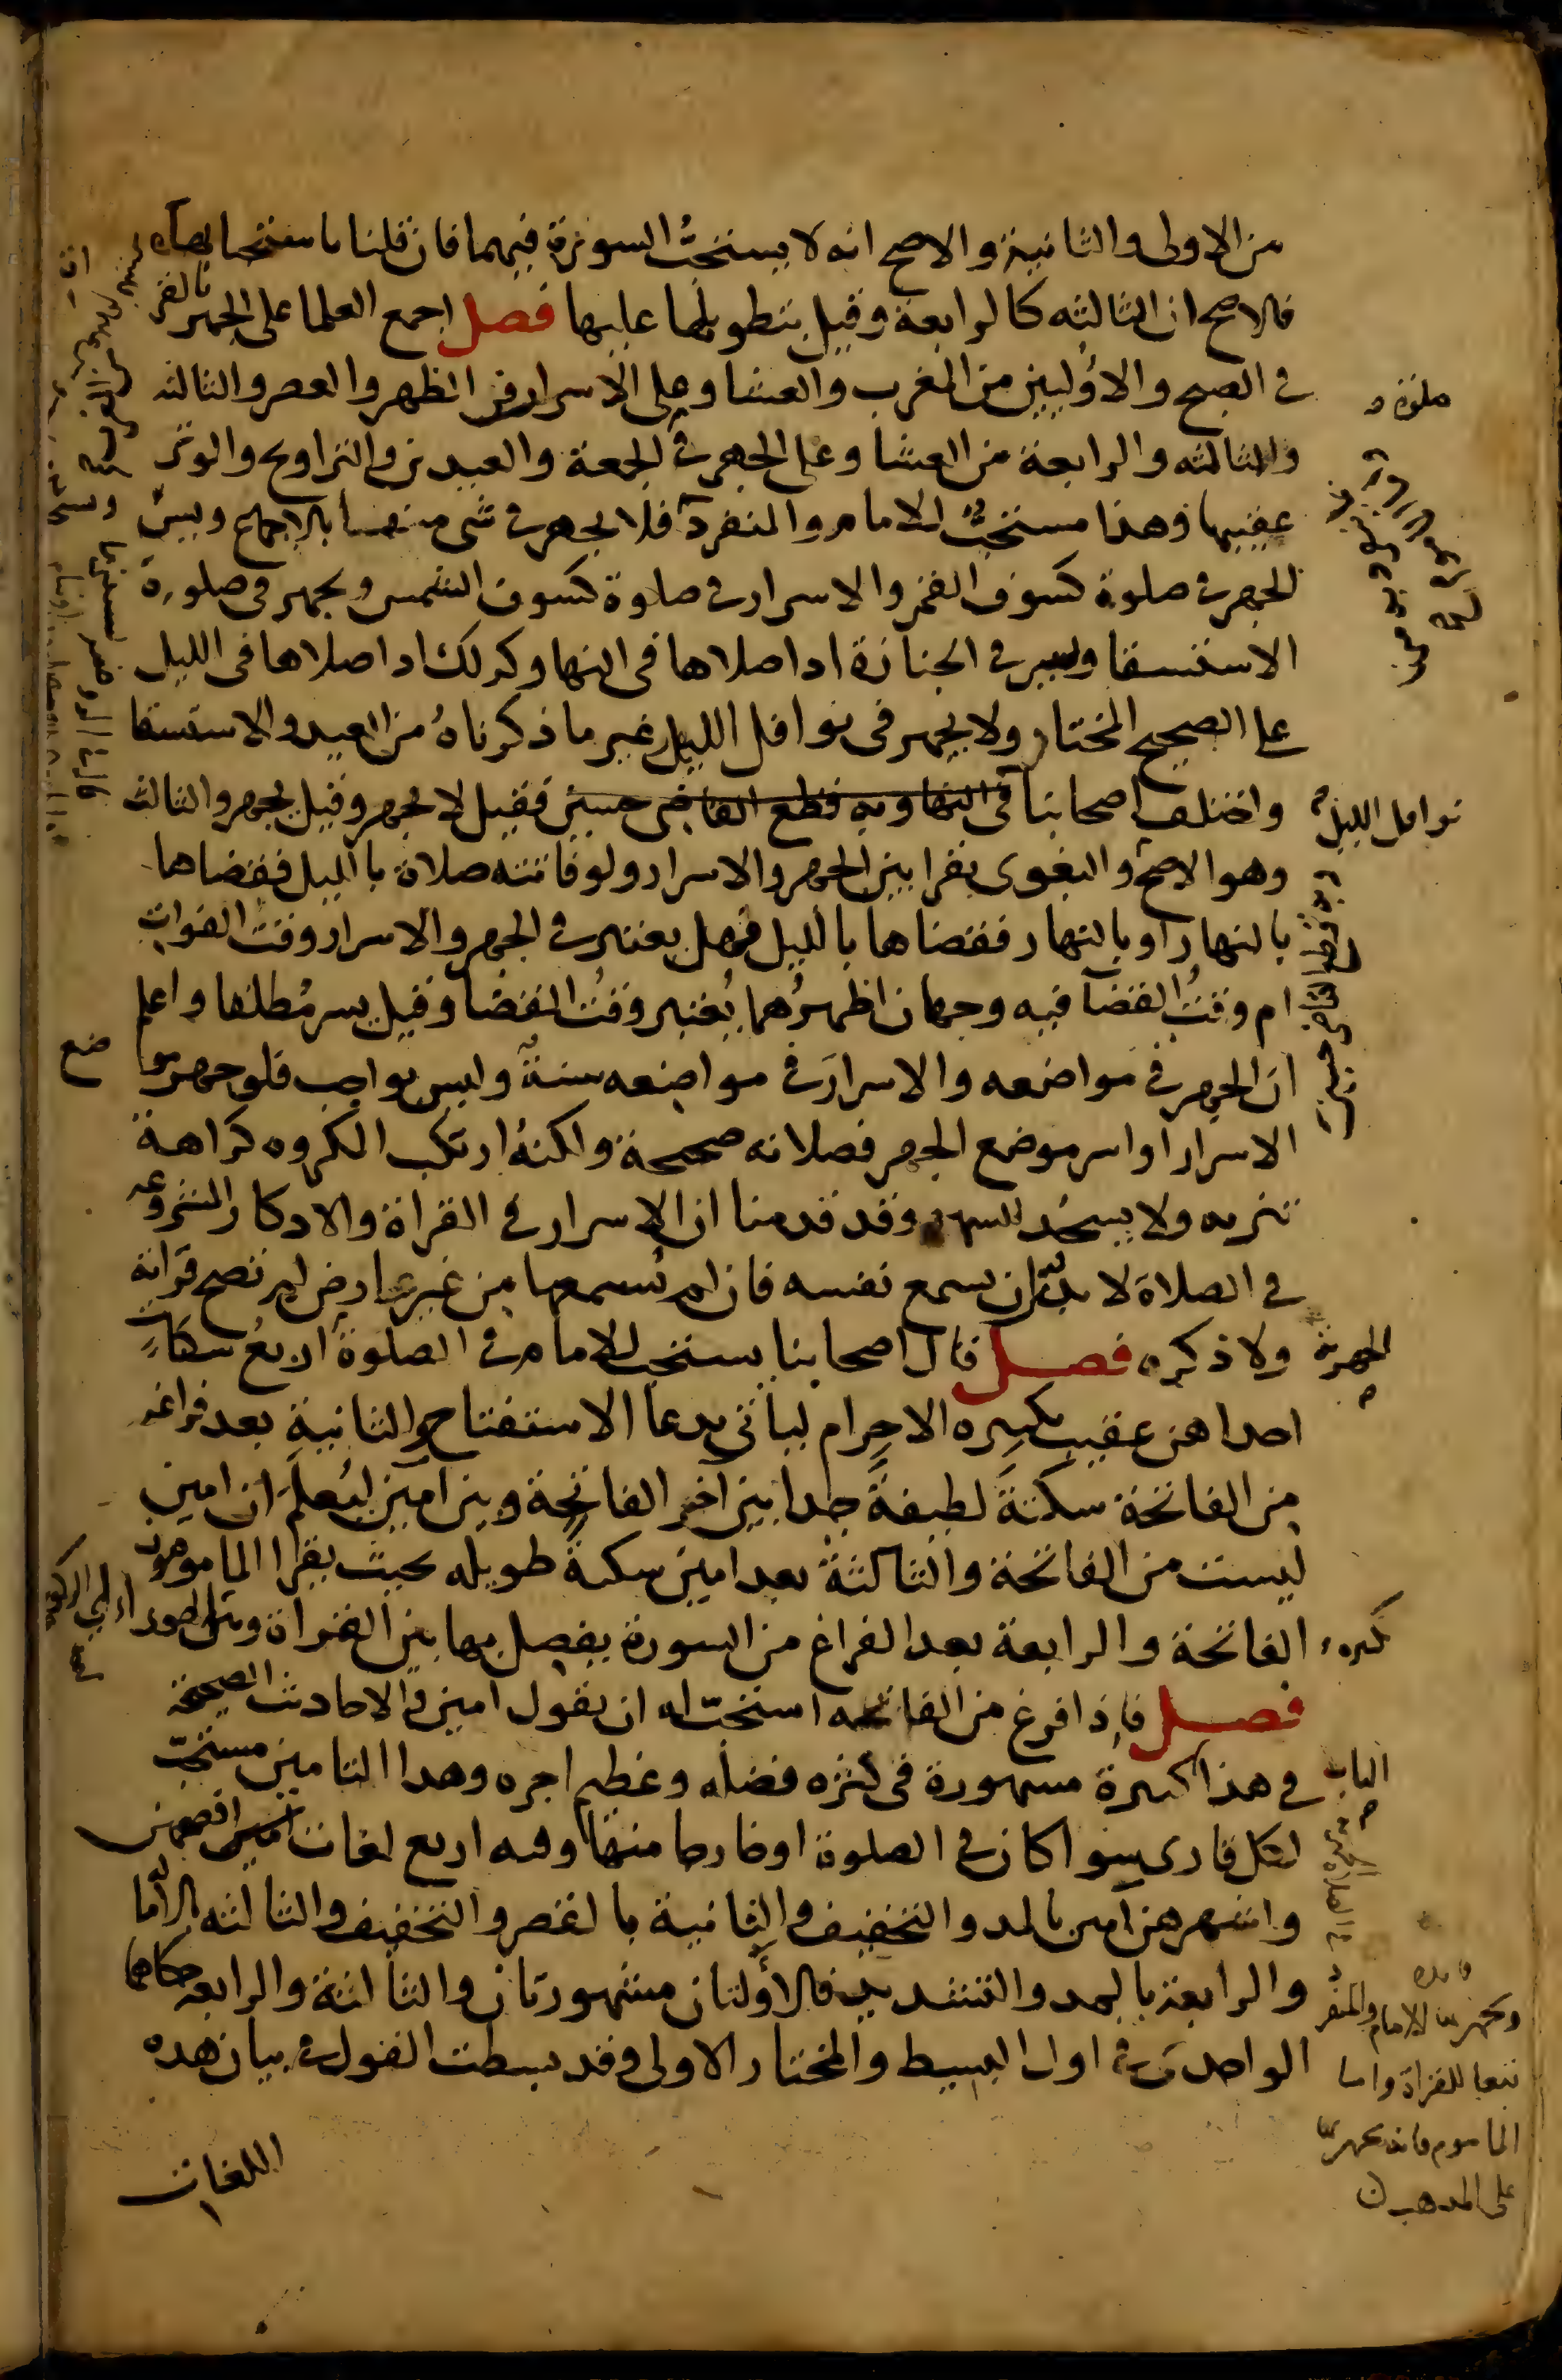 من الاولى والثانية والاصح انه لا يستحب السورة فيهما فان قلنا باستحبابها
فالاصح ان الثالثه كالرابعة وقيل بتطويلها عليها فصل اجمع العلما على الجهر بالقر
في الصبح والاوليين من المغرب والعشا وعلى الاسرار في الظهر والعصر والثالثه
والثالثه والرابعة من العشا وعلى الجهر في الجمعة والعيدين والتراويح والوتر
عقبيها وهذا مستحب للامام والمنفرد فلا يجهر في شي منها بالاجماع ويسن
الجهر في صلوة كسوف القمر والاسرار في صلوة كسوف الشمس ويجهر في صلوة
الاستسقا ويسر في الجنازة اذا صلاها في النها وكذلك اذا صلاها في الليل
على الصحيح المختار ولا يجهر في نوافل الليل غير ما ذكرناه من العيد والاستسقا
واختلف اصحابنا في النها وبه قطع القاضي حسين فقيل لا يجهر وقيل يجهر والثالث
وهو الاصح والبغوى يقرا بين الجهر والاسرار ولو فاتته صلاة بالليل فقضاها
بالنهار او بالنهار فقضاها بالليل فهل يعتبر في الجهر والاسرار وقت الفوات
ام وقت القضآ فيه وجهان اظهرهما يعتبر وقت القضا وقيل يسر مطلقا واعلم
ان الجهر في مواضعه والاسرار في مواضعه سنة وليس بواجب فلو جهر مو
ضع
الاسرار او اسر موضع الجهر فصلاته صحيحة ولكنه ارتكب المكروه كراهة
تنزيه ولا يسجد للسهو وقد قدمنا ان الاسرار في القراة والاذكار المشروعه
في الصلاة لا بد ان يسمع نفسه فان لم يسمعها من غير عارض لم تصح قراته
ولا ذكره فصل قال اصحابنا يستحب للامام في الصلوة اربع سكتات
احداهن عقيب تكبيره الاحرام لياتي بدعا الاستفتاح والثانية بعد فراغه
من الفاتحة سكتة لطيفة جدا بين اخر الفاتحة وبين امين ليعلم ان امين
ليست من الفاتحة والثالثة بعد امين سكتة طويله بحيث يقرا الماموموں
الفاتحة والرابعة بعد الفراغ من السورة يفصل بها بين القراة
فصل فاذا فرغ من الفاتحه استحب له ان يقول امين والاحاديث الصحيحة
في هذا كثيرة مشهورة في كثره فضله وعظيم اجره وهذا التامين مستحب
لكل قارى سوا كان في الصلوة او خارجا منها وفيه اربع لغات افصحهن
واشهرهن آمين بالمد والتخفيف والثانية بالقصر والتخفيف والثالثه بالاما
والرابعة بالمد والتشديد فالاولتان مشهورتان والثالثة والرابعه حكاهما
الواحدى في اول البسيط والمختار الاولى وقد بسطت القول في بيان هذه
اللغات
صلوة
نوافل الليل
وبه قطع القاضي حسين
الجهرية
الباب
ويجهر به الامام والمنفر
تبعا للقراة واما
الماموم فانه يجهر به
على المذهب